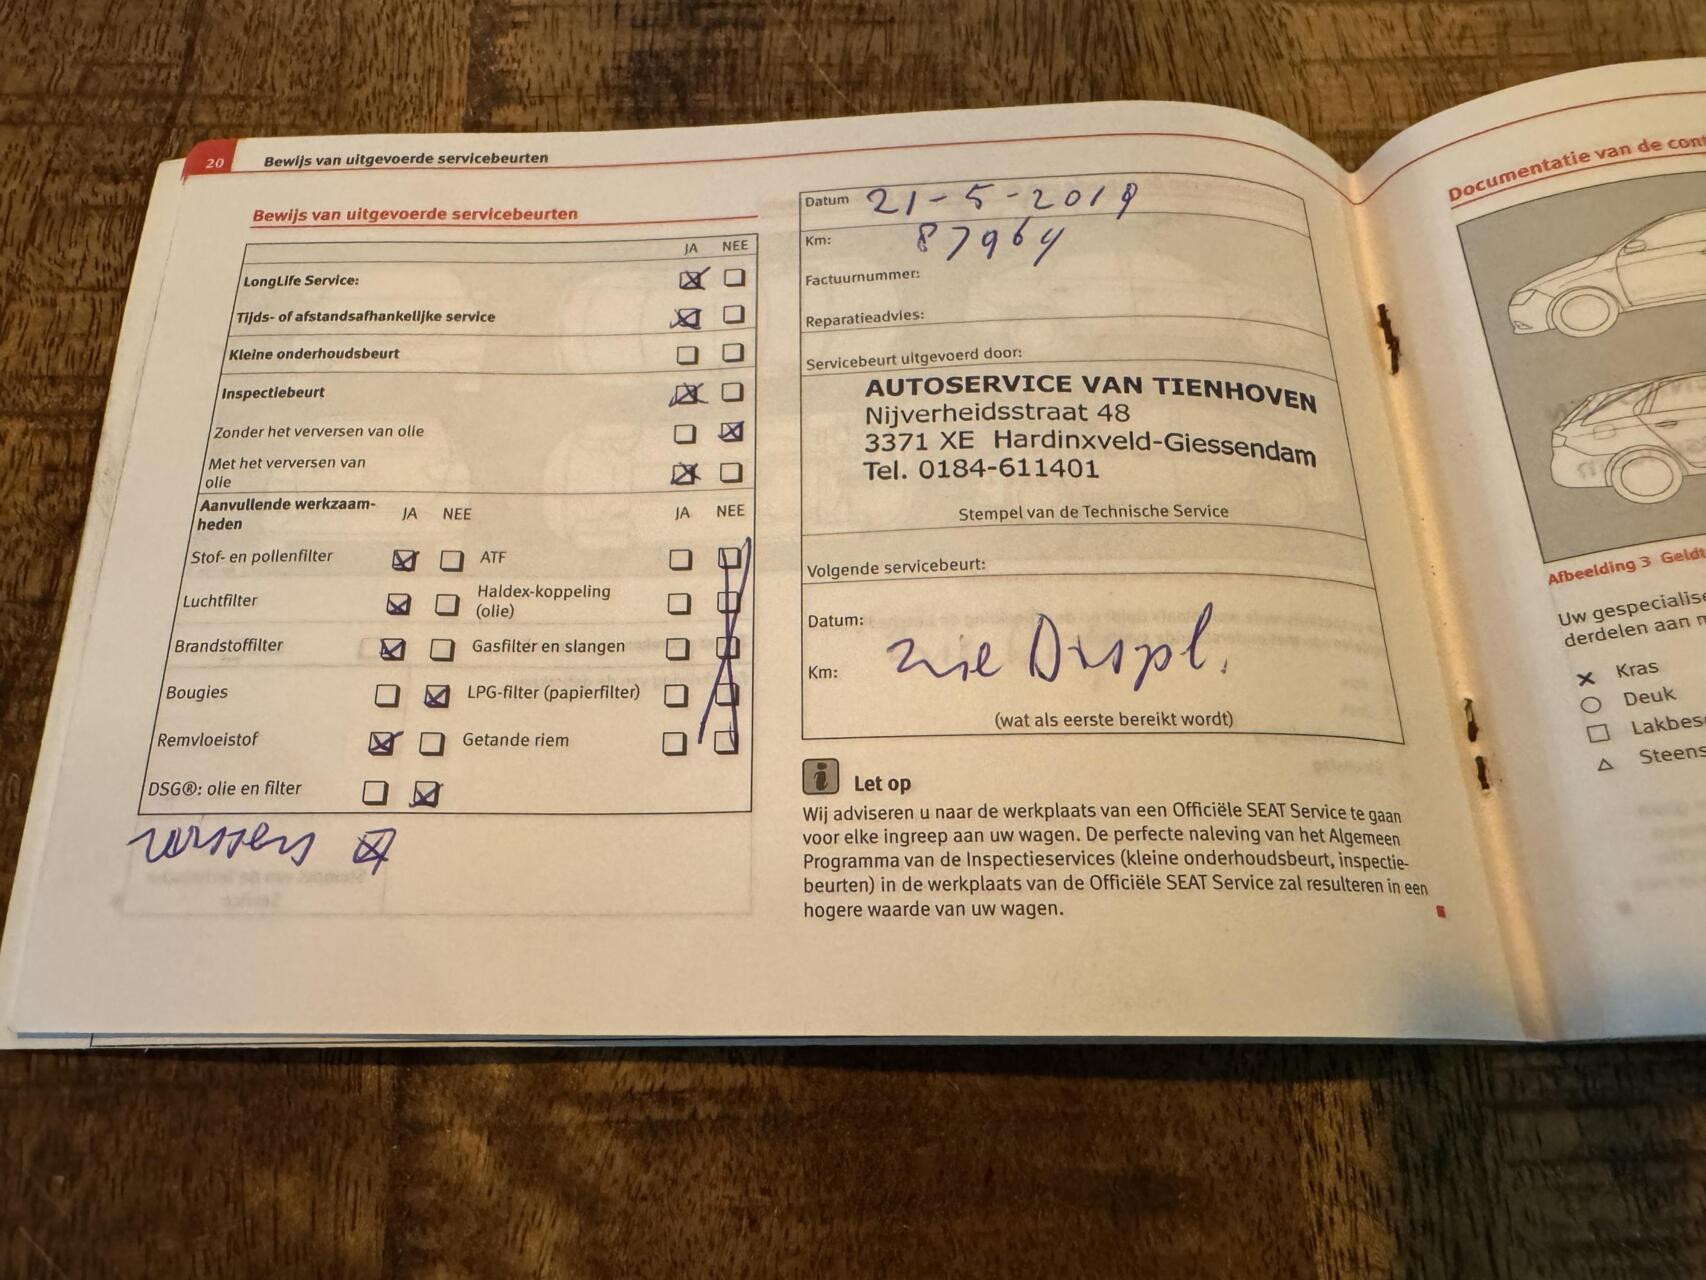 20 Bewijs van uitgevoerde servicebeurten
Bewijs van uitgevoerde servicebeurten
JA NEE
LongLife Service:
Tijds- of afstandsafhankelijke service
Kleine onderhoudsbeurt
Inspectiebeurt
Zonder het verversen van olie
Met het verversen van
olie
Aanvullende werkzaam-
heden
JA NEE JA NEE
Stof- en pollenfilter ATF
Luchtfilter Haldex-koppeling
(olie)
Brandstoffilter Gasfilter en slangen
Bougies LPG-filter (papierfilter)
Remvloeistof Getande riem
DSG®: olie en filter
Datum 21-5-2019
Km: 87964
Factuurnummer:
Reparatieadvies:
Servicebeurt uitgevoerd door:
AUTOSERVICE VAN TIENHOVEN
Nijverheidsstraat 48
3371 XE Hardinxveld-Giessendam
Tel. 0184-611401
Stempel van de Technische Service
Volgende servicebeurt:
Datum:
zie Displ.
Km:
(wat als eerste bereikt wordt)
i Let op
Wij adviseren u naar de werkplaats van een Officiële SEAT Service te gaan
voor elke ingreep aan uw wagen. De perfecte naleving van het Algemeen
Programma van de Inspectieservices (kleine onderhoudsbeurt, inspectie-
beurten) in de werkplaats van de Officiële SEAT Service zal resulteren in een
hogere waarde van uw wagen.
Documentatie van de con
Afbeelding 3 Geldt
Uw gespecialise
derdelen aan
Kras
Deuk
Lakbes
Steens